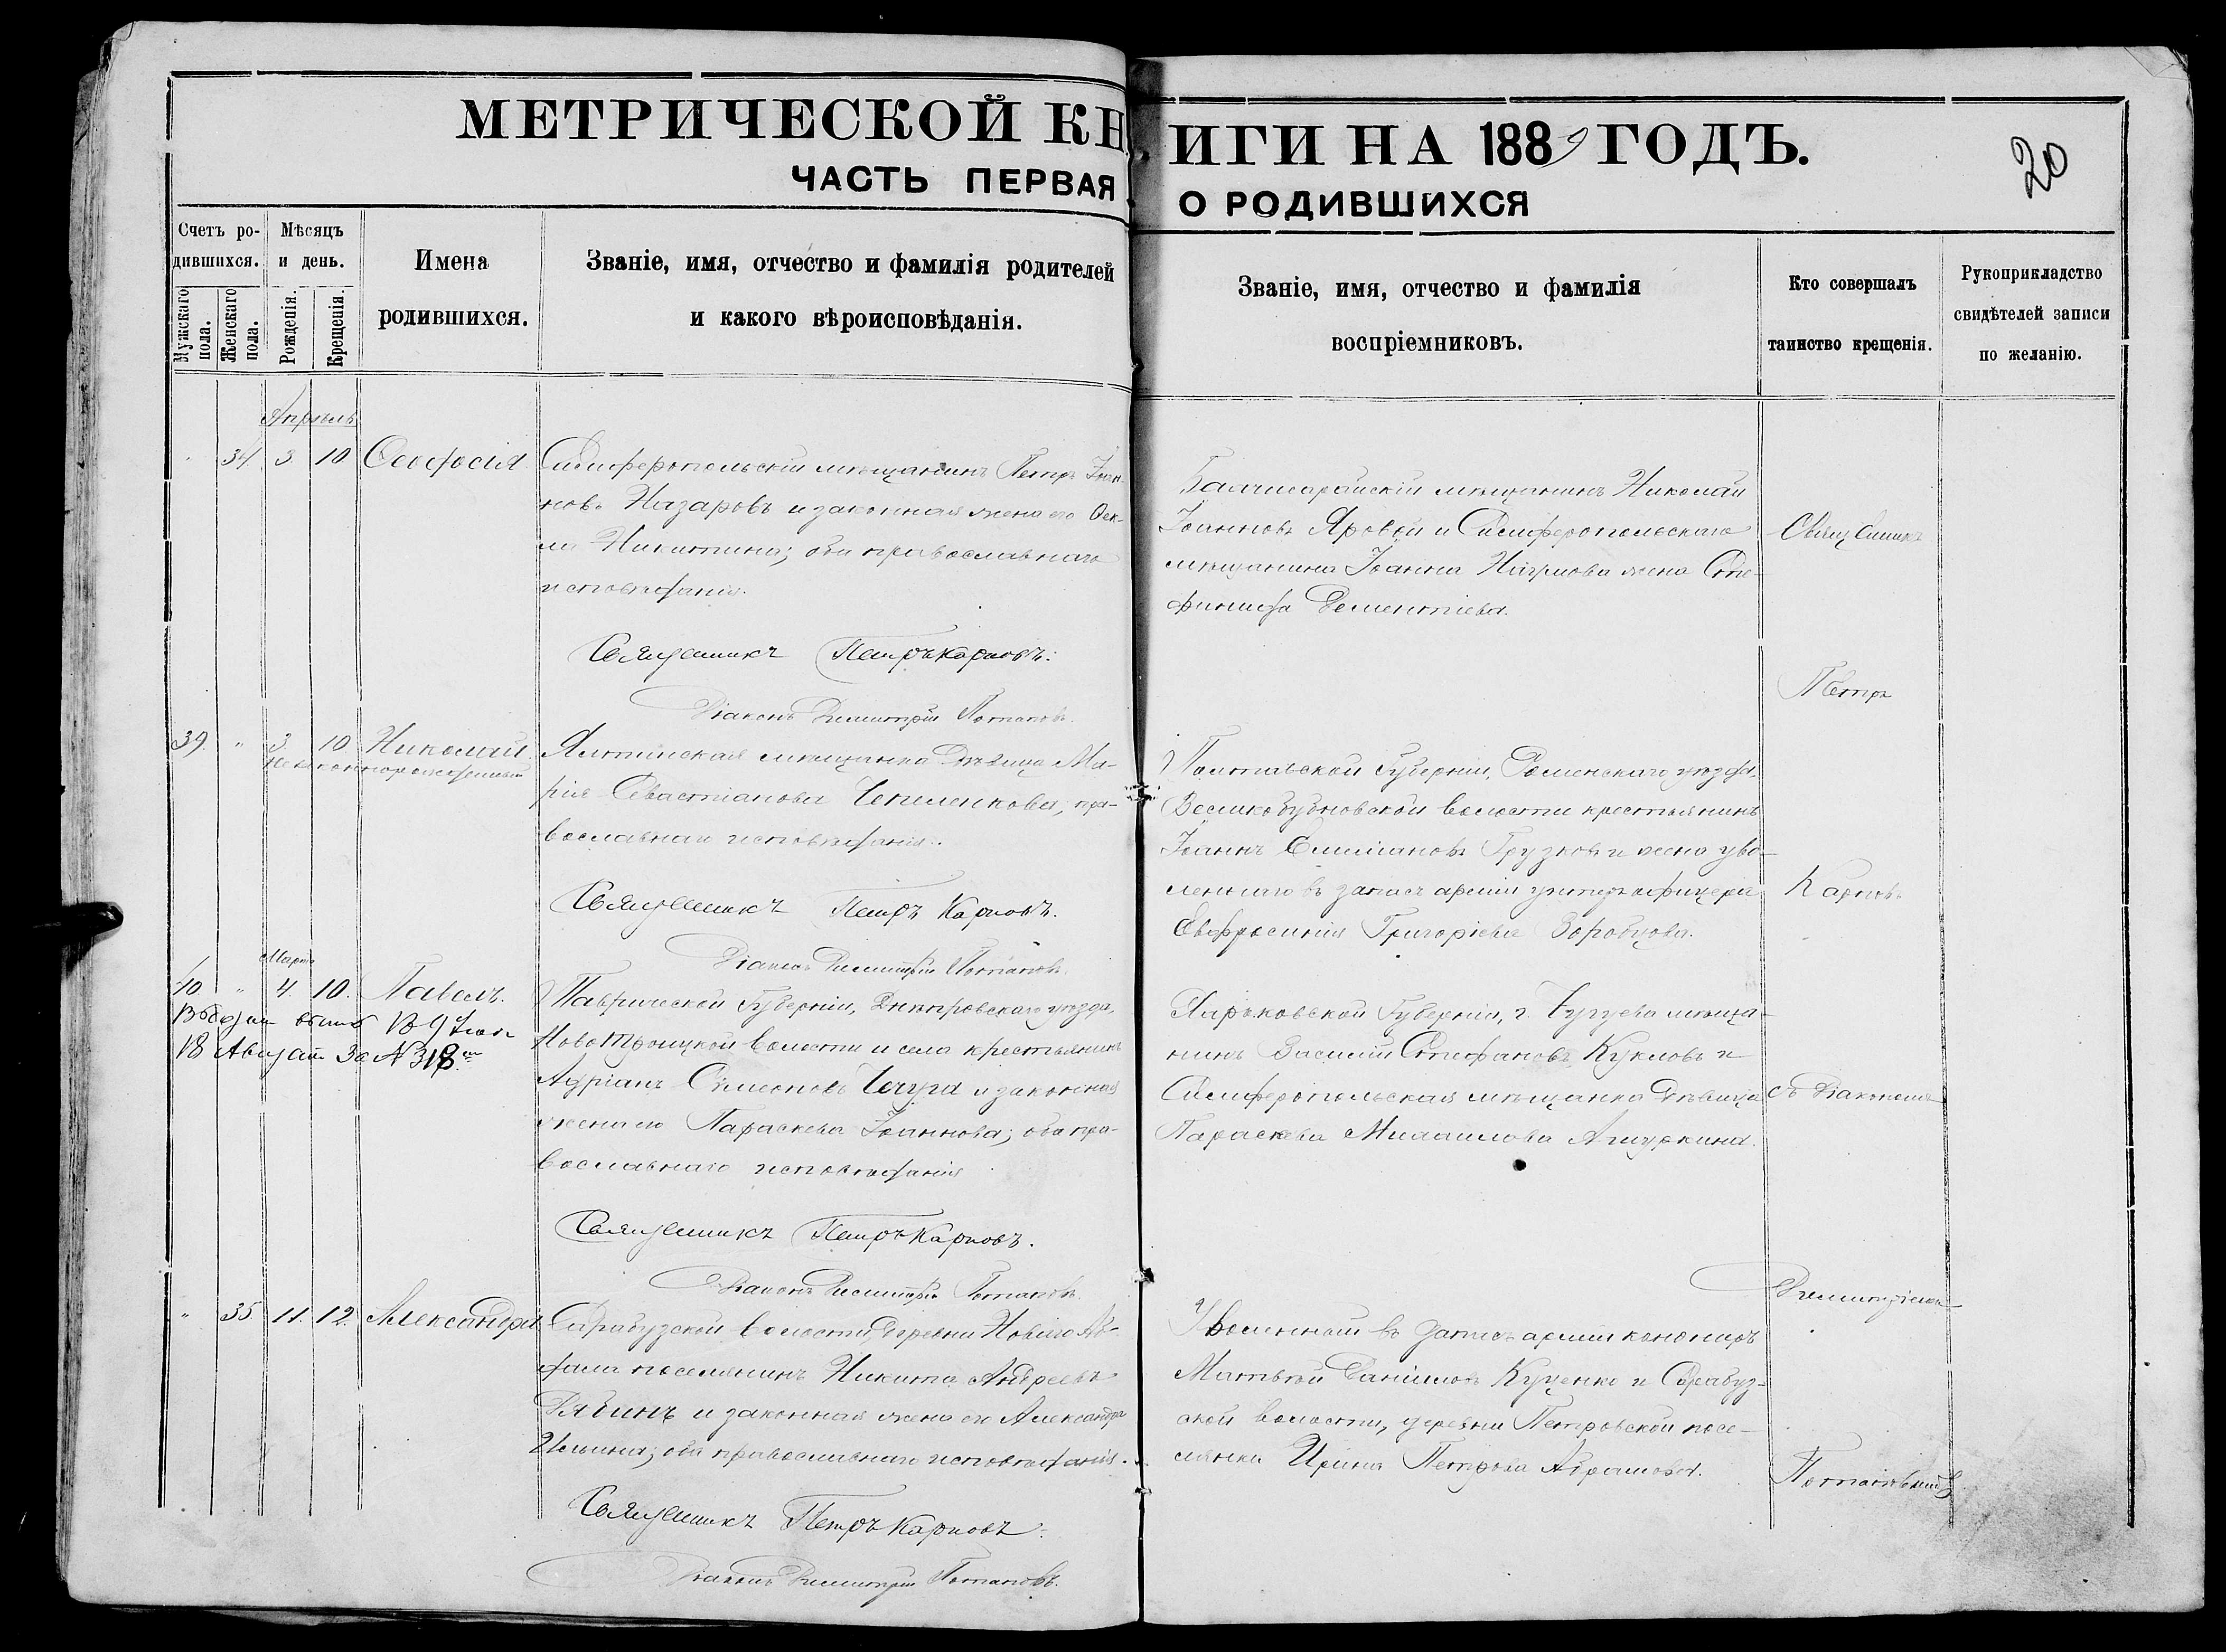 МЕТРИЧЕСКОЙ КНИГИ НА 1889 ГОДЪ.
20
ЧАСТЬ ПЕРВАЯ О РОДИВШИХСЯ
Счетъ ро-
дившихся.
Мужскаго
пола.
Женскаго
пола.
Мѣсяцъ
и день.
Рожденія.
Крещенія.
Имена
родившихся.
Званіе, имя, отчество и фамилія родителей
и какого вѣроисповѣданія.
Званіе, имя, отчество и фамилія
воспріемниковъ.
Кто совершалъ
таинство крещенія.
Рукоприкладство
свидѣтелей записи
по желанію.
Апрѣль
34 3 10 Ѳеодосія
Симферопольскій мѣщанинъ Петръ Іоан-
новъ Назаровъ и законная жена его Ѳек-
ла Никитина; оба православнаго
исповѣданія.
Священникъ Петръ Карповъ.
Діаконъ Димитрій Потаповъ.
Бахчисарайскій мѣщанинъ Николай
Іоанновъ Яровой и Симферопольскаго
мѣщанина Іоанна жена Сте-
фанида Дементіева.
Священникъ
Петръ
39 " 3 10 Николай
незаконнорожденный
Ялтинская мѣщанка дѣвица Ма-
рія Севастіанова Чепиленкова, пра-
вославнаго исповѣданія.
Священникъ Петръ Карповъ.
Діаконъ Димитрій Потаповъ.
Полтавской Губерніи, Роменскаго уѣзда,
Великобубновской волости крестьянинъ
Іоаннъ Емиліановъ Грузковъ и жена уво-
леннаго въ запасъ арміи унтеръ офицера
Евфросинія Григоріева Воробцова.
Карповъ
Мартъ
40 " 4. 10. Павелъ.
18 Августа за № 318
Таврической Губерніи, Днѣпровскаго уѣзда,
Ново Троицкой волости и села крестьянинъ
Адріанъ Симеоновъ Чечура и законная
жена его Параскева Іоаннова; оба пра-
вославнаго исповѣданія
Священникъ Петръ Карповъ.
Діаконъ Димитрій Потаповъ.
Харьковской Губерніи, г. Чугуева мѣща-
нинъ Василій Стефановъ Кукловъ и
Симферопольская мѣщанка дѣвица
Параскева Михаилова Ашуркина.
съ Діакономъ
Димитріемъ
" 35. 11. 12. Александра
Сарабузской волости деревни Новаго Аб-
дала поселянинъ Никита Андреевъ
Рябинъ и законная жена его Александра
Ильина; оба православнаго исповѣданія.
Священникъ Петръ Карповъ.
Діаконъ Димитрій Потаповъ.
Уволенный въ запасъ арміи канониръ
Матвѣй Даниловъ Куценко и Сарабуз-
ской волости, деревни Петровской посе-
лянка Ирина Петрова Абрамова.
Потаповымъ